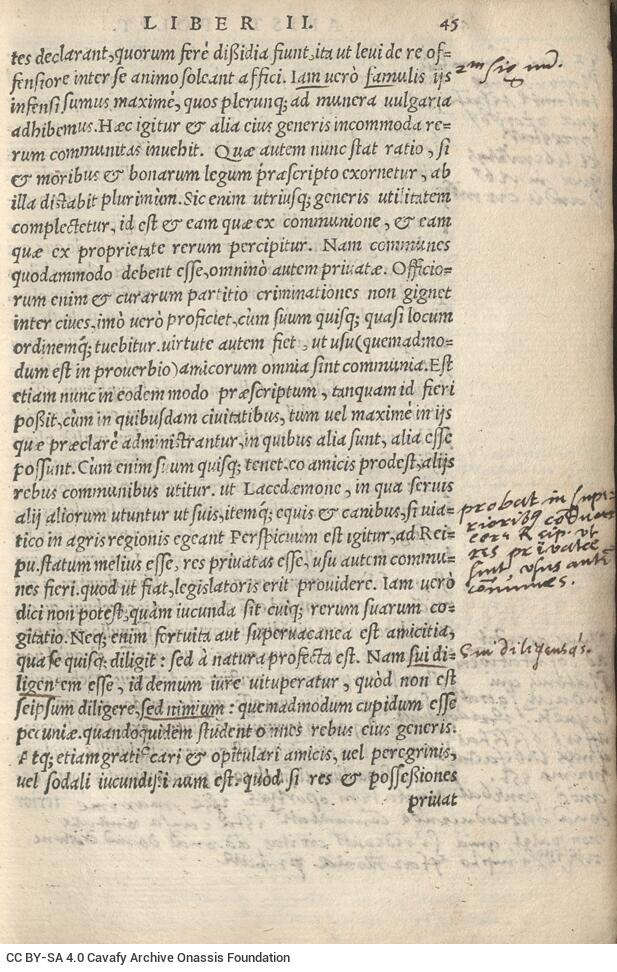 LIBER II. 45
tes declarant, quorum ferè dißidia fiunt, ita ut levi de re of=
fensiore inter se animo soleant affici. Iam uerò famulis ijs
infensi sumus maximè, quos plerunq; ad munera uulgaria
adhibemus. Hæc igitur & alia eius generis incommoda re=
rum communitas inuehit. Quæ autem nunc stat ratio, si
& moribus & bonarum legum præscripto exornetur, ab
illa distabit plurimùm. Sic enim utriusq; generis utilitatem
complectetur, id est & eam quæ ex communione, & eam
quæ ex proprietate rerum percipitur. Nam communes
quodammodo debent esse, omninò autem priuatæ. Officio=
rum enim & curarum partitio criminationes non gignet
inter ciues, imò uerò proficiet, cùm suum quisq; quasi locum
ordinemq; tuebitur. uirtute autem fiet, ut usu (quemadmo=
dum est in prouerbio) amicorum omnia sint communia. Est
etiam nunc in eodem modo præscriptum, tanquam id fieri
poßit, cùm in quibusdam ciuitatibus, tum uel maximè in ijs
quæ præclarè administrantur, in quibus alia sunt, alia esse
possunt. Cùm enim suum quisq; tenet, eo amicis prodest, alijs
rebus communibus utitur. ut Lacedæmone, in qua seruis
alij aliorum utuntur ut suis, itemq; equis & canibus, si uia=
tico in agris regionis egeant Perspicuum est igitur, ad Rei=
pu. statum melius esse, res priuatas esse, usu autem commu=
nes fieri. quod ut fiat, legislatoris erit prouidere. Iam uerò
dici non potest, quàm iucunda sit cuiq; rerum suarum co=
gitatio. Neq; enim fortuita aut superuacanea est amicitia,
qua se quisq; diligit: sed à natura profecta est. Nam sui di=
ligentem esse, id demum iure uituperatur, quòd non est
seipsum diligere, sed nimium: quemadmodum cupidum esse
pecuniæ. quandoquidem student omnes rebus eius generis.
Atq; etiam gratificari & opitulari amicis, uel peregrinis,
uel sodali iucundißimum est. quòd si res & possessiones
priuat
probat in supe=
rioribq
eorū Reip. ut
res privatæ
sint usus autē
cōmunes.
Sui diligensqs.
CC BY-SA 4.0 Cavafy Archive Onassis Foundation